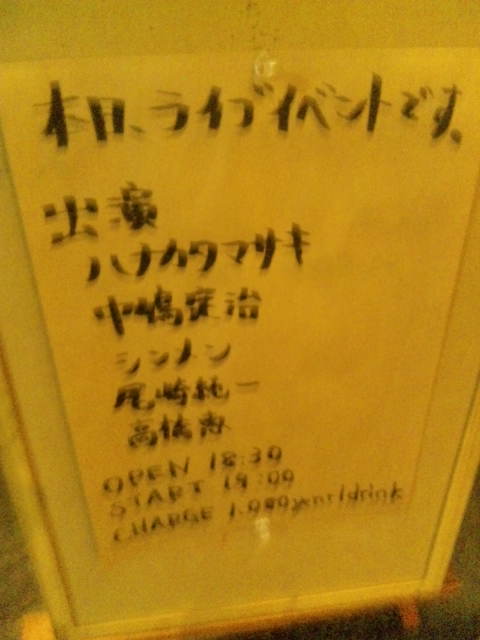 本日、ライブイベントです。
出演
ハナカワマサキ
中嶋定治
シンメン
尾崎純一
高橋恵
OPEN 18:30
START 19:00
CHARGE 1,000yen+1drink